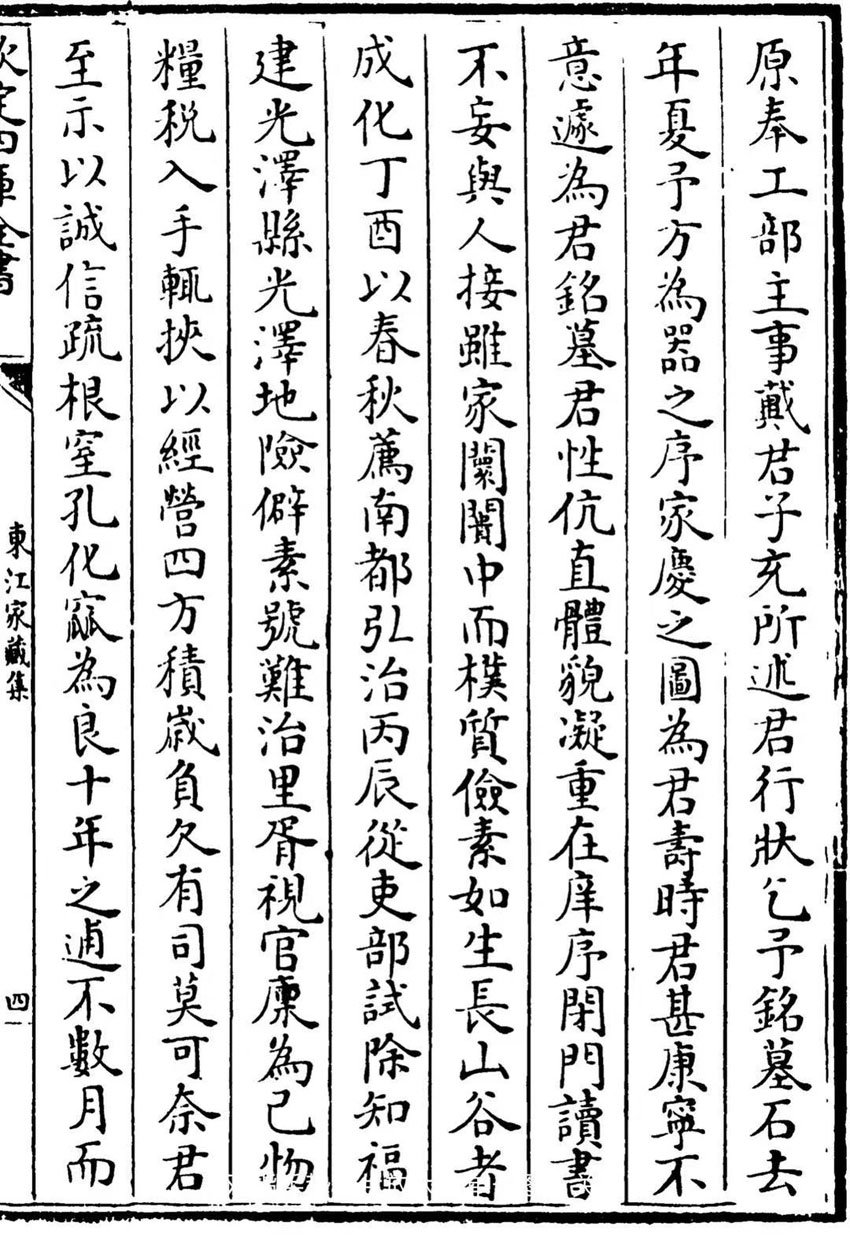 原奉工部主事戴君子充所述君行狀乞予銘墓石去
年夏予方為器之序家慶之圖為君壽時君甚康寧不
意遽為君銘墓君性伉直體貌凝重在庠序閉門讀書
不妄與人接雖家闤闠中而樸質儉素如生長山谷者
成化丁酉以春秋薦南都弘治丙辰從吏部試除知福
建光澤縣光澤地險僻素號難治里胥視官廩為己物
糧稅入手輒挾以經營四方積歲負欠有司莫可奈君
至示以誠信疏根窒孔化窳為良十年之逋不數月而
欽定四庫全書
東江家藏集
四